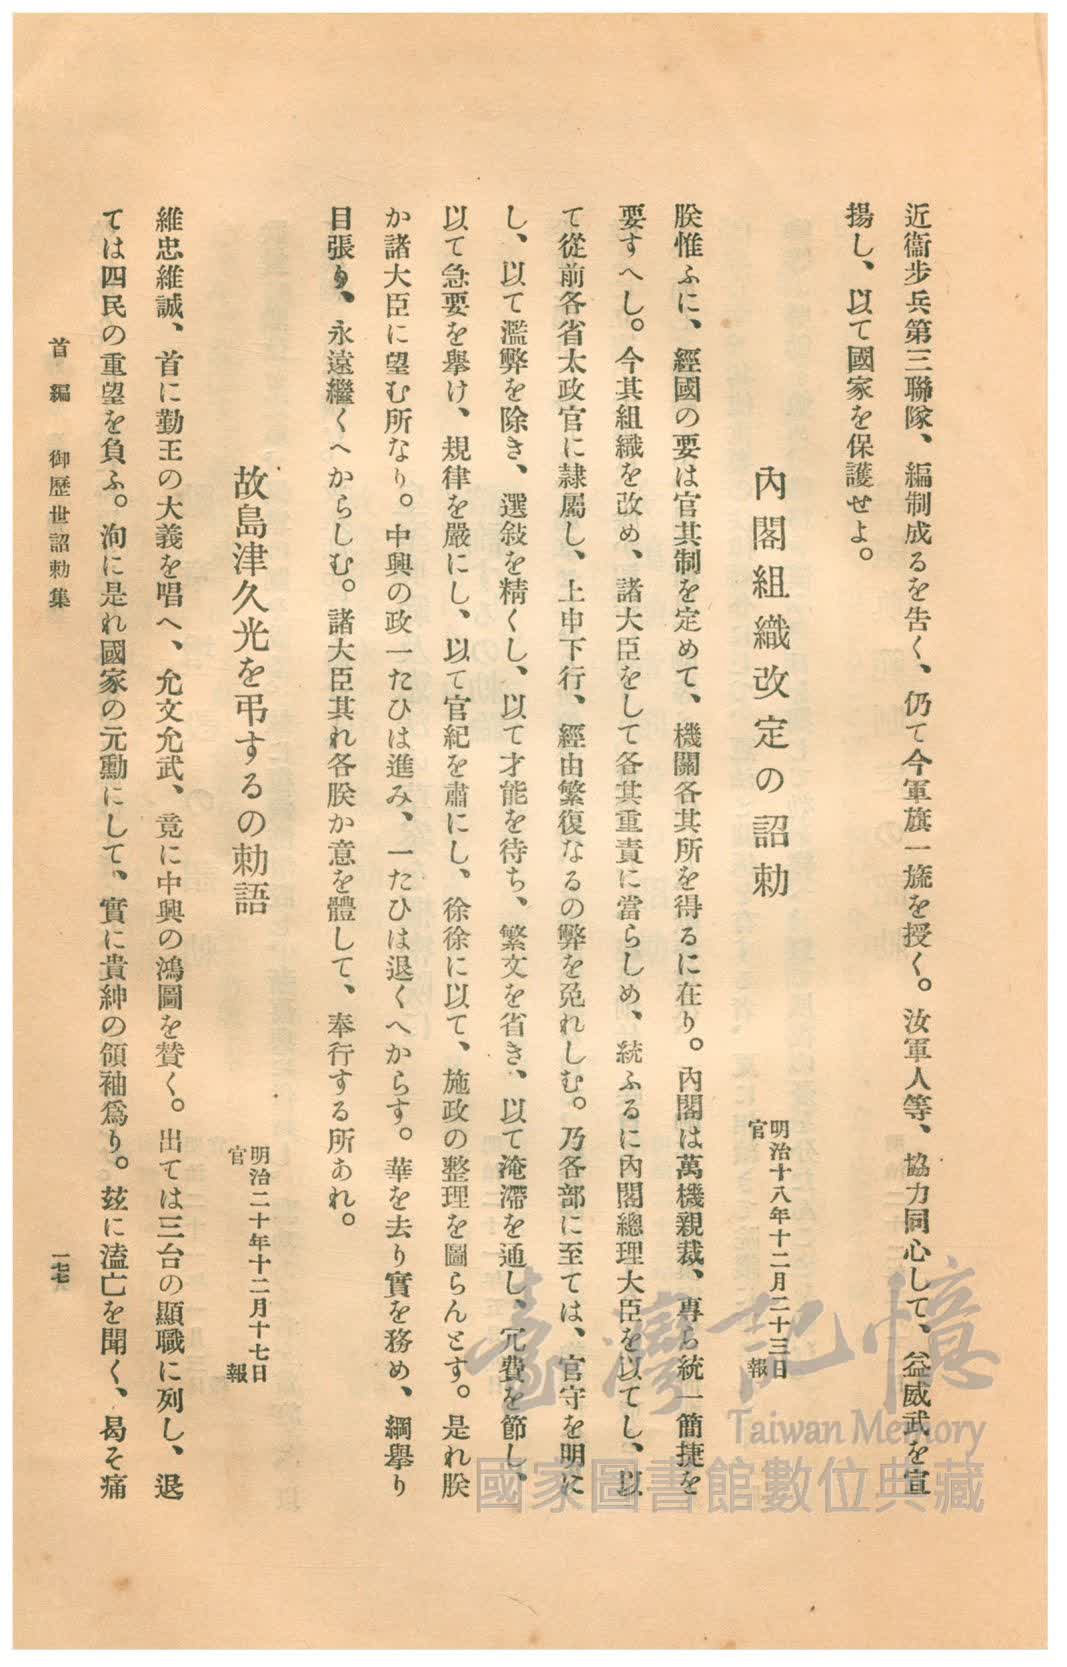 近衞步兵第三聯隊、編制成るを告く、仍て今軍旗一旒を授く。汝軍人等、協力同心して、益威武を宣
揚し、以て國家を保護せよ。
內閣組織改定の詔勅
明治十八年十二月二十三日
官報
朕惟ふに、經國の要は官其制を定めて、機關各其所を得るに在り。內閣は萬機親裁、專ら統一簡捷を
要すへし。今其組織を改め、諸大臣をして各其重責に當らしめ、統ふるに內閣總理大臣を以てし、以
て從前各省太政官に隷屬し、上申下行、經由繁復なるの弊を免れしむ。乃各部に至ては、官守を明に
し、以て濫弊を除き、選敍を精くし、以て才能を待ち、繁文を省き、以て淹滯を通し、冗費を節し、
以て急要を擧け、規律を嚴にし、以て官紀を肅にし、徐徐に以て、施政の整理を圖らんとす。是れ朕
か諸大臣に望む所なり。中興の政一たひは進み、一たひは退くへからす。華を去り實を務め、綱擧り
目張り、永遠繼くへからしむ。諸大臣其れ各朕か意を體して、奉行する所あれ。
故島津久光を弔するの勅語
明治二十年十二月十七日
官報
維忠維誠、首に勤王の大義を唱へ、允文允武、竟に中興の鴻圖を賛く。出ては三台の顯職に列し、退
ては四民の重望を負ふ。洵に是れ國家の元勳にして、實に貴紳の領袖爲り。玆に溘亡を聞く、曷そ痛
首編 御歷世詔勅集
一七七
臺灣記憶
Taiwan Memory
國家圖書館數位典藏